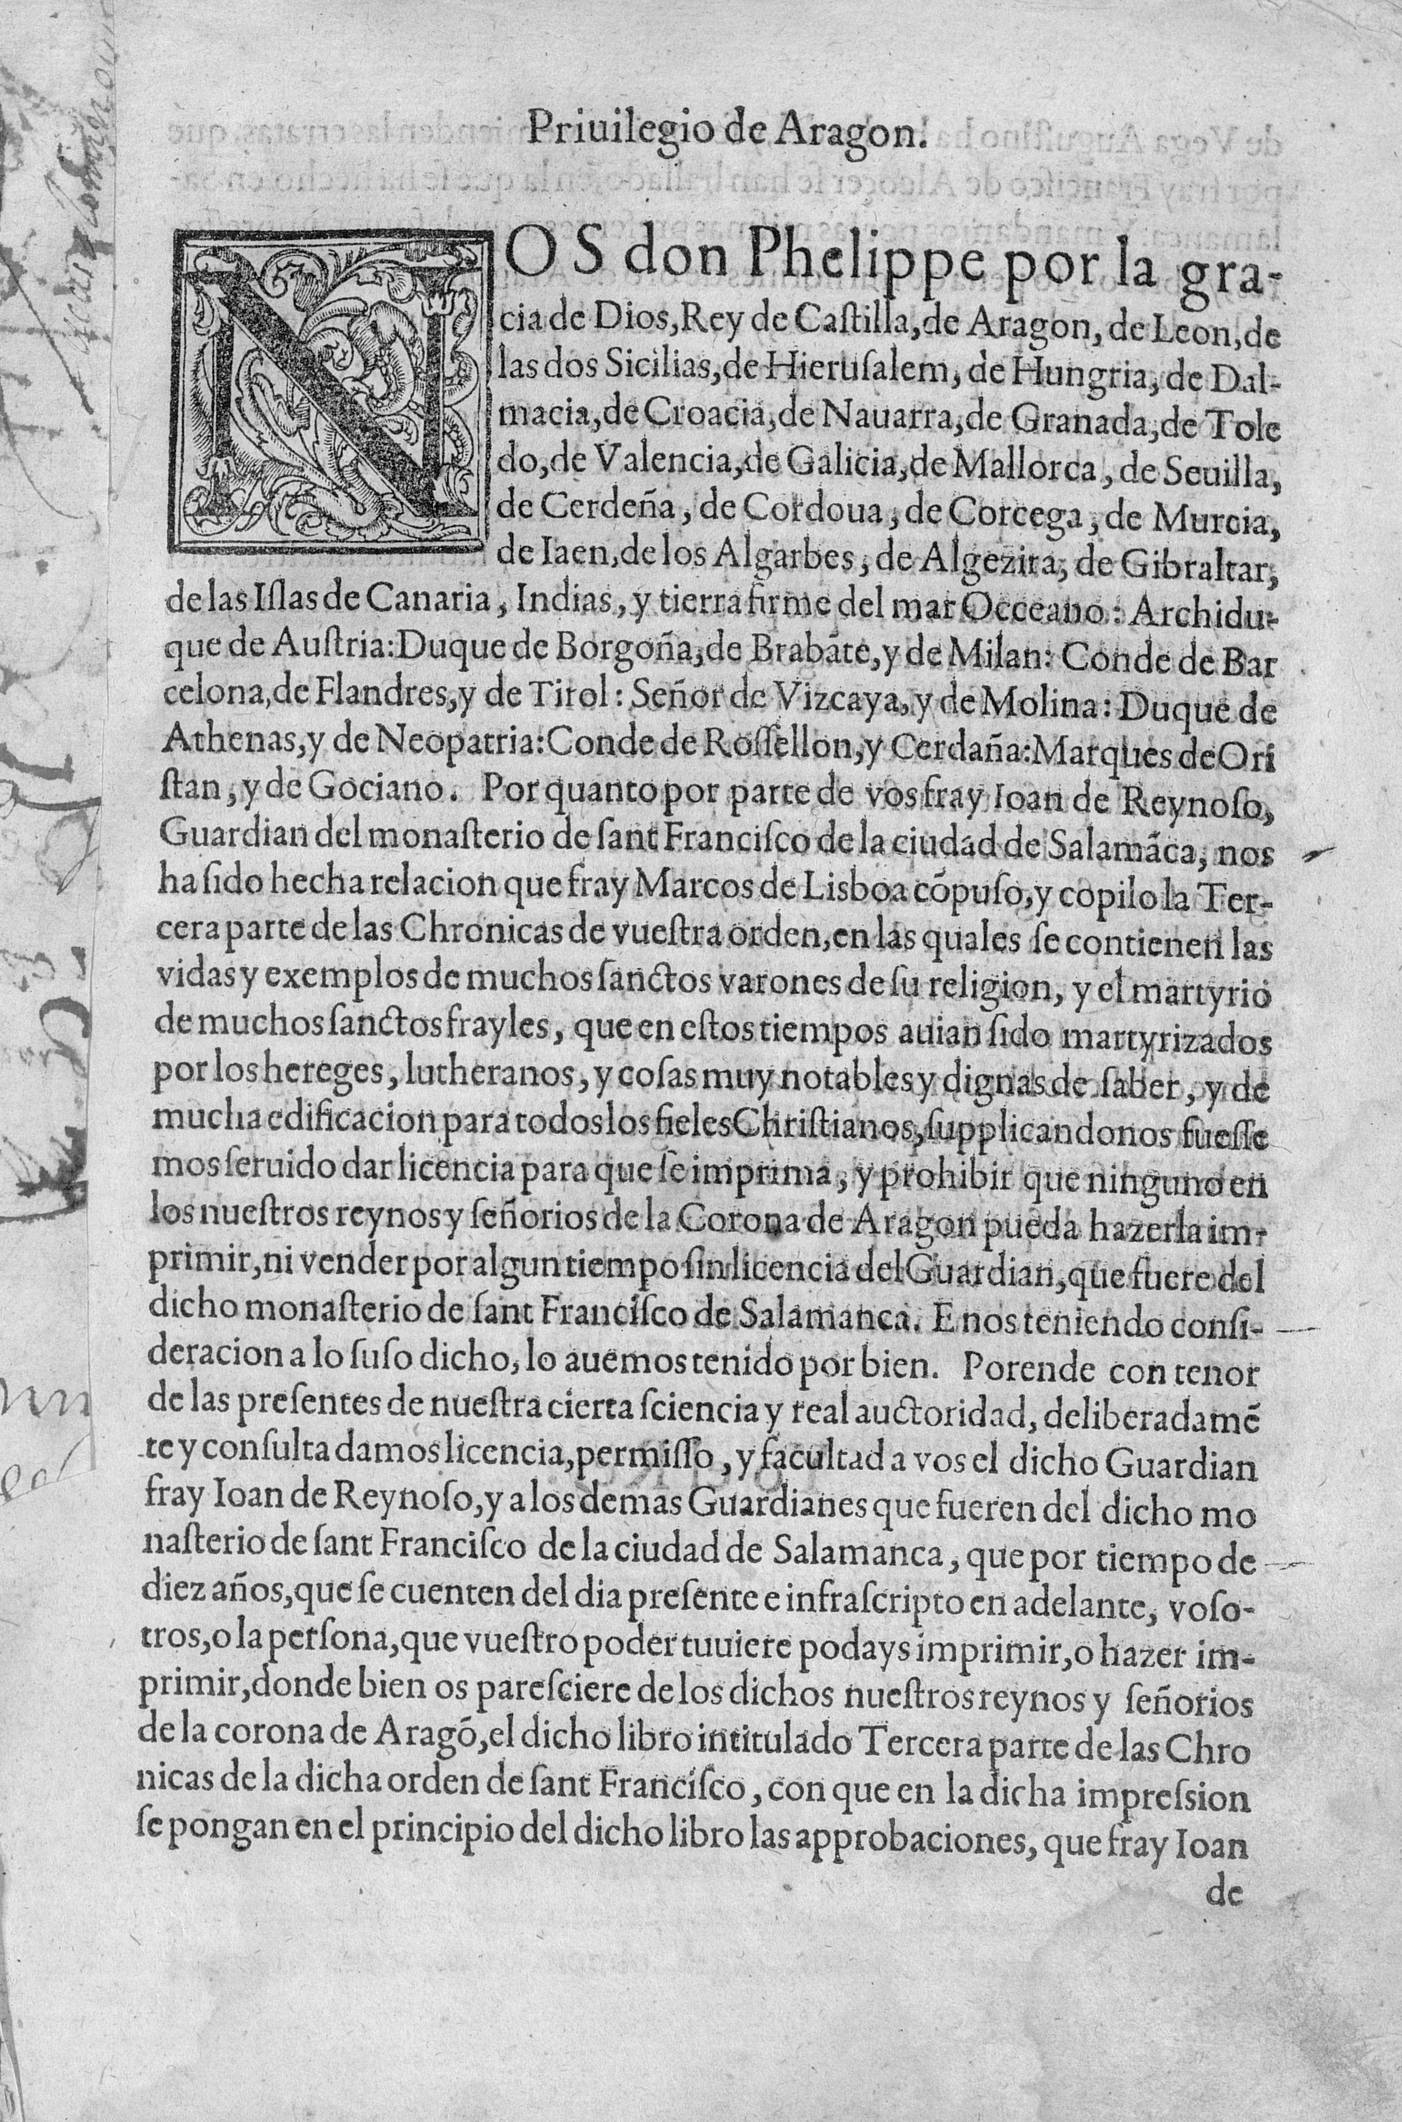 Priuilegio de Aragon.
NOS don Phelippe por la gra-
cia de Dios, Rey de Castilla, de Aragon, de Leon, de
las dos Sicilias, de Hierusalem, de Hungria, de Dal-
macia, de Croacia, de Nauarra, de Granada, de Tole
do, de Valencia, de Galicia, de Mallorca, de Seuilla,
de Cerdeña, de Cordoua, de Corcega, de Murcia,
de Iaen, de los Algarbes, de Algezira, de Gibraltar,
de las Islas de Canaria, Indias, y tierra firme del mar Occeano: Archidu-
que de Austria: Duque de Borgoña, de Brabãte, y de Milan: Conde de Bar
celona, de Flandres, y de Tirol: Señor de Vizcaya, y de Molina: Duque de
Athenas, y de Neopatria: Conde de Rossellon, y Cerdaña: Marques de Ori
stan, y de Gociano. Por quanto por parte de vos fray Ioan de Reynoso,
Guardian del monasterio de sant Francisco de la ciudad de Salamãca, nos
ha sido hecha relacion que fray Marcos de Lisboa cõpuso, y copilo la Ter-
cera parte de las Chronicas de vuestra orden, en las quales se contienen las
vidas y exemplos de muchos sanctos varones de su religion, y el martyrio
de muchos sanctos frayles, que en estos tiempos auian sido martyrizados
por los hereges, lutheranos, y cosas muy notables y dignas de saber, y de
mucha edificacion para todos los fieles Christianos, supplicandonos fuesse
mos seruido dar licencia para que se imprima, y prohibir que ninguno en
los nuestros reynos y señorios de la Corona de Aragon pueda hazerla im-
primir, ni vender por algun tiempo sin licencia del Guardian, que fuere del
dicho monasterio de sant Francisco de Salamanca. E nos teniendo consi-
deracion a lo suso dicho, lo auemos tenido por bien. Porende con tenor
de las presentes de nuestra cierta sciencia y real auctoridad, deliberadamẽ
te y consulta damos licencia, permisso, y facultad a vos el dicho Guardian
fray Ioan de Reynoso, y a los demas Guardianes que fueren del dicho mo
nasterio de sant Francisco de la ciudad de Salamanca, que por tiempo de
diez años, que se cuenten del dia presente e infrascripto en adelante, voso-
tros, o la persona, que vuestro poder tuuiere podays imprimir, o hazer im-
primir, donde bien os paresciere de los dichos nuestros reynos y señorios
de la corona de Aragõ, el dicho libro intitulado Tercera parte de las Chro
nicas de la dicha orden de sant Francisco, con que en la dicha impression
se pongan en el principio del dicho libro las approbaciones, que fray Ioan
de